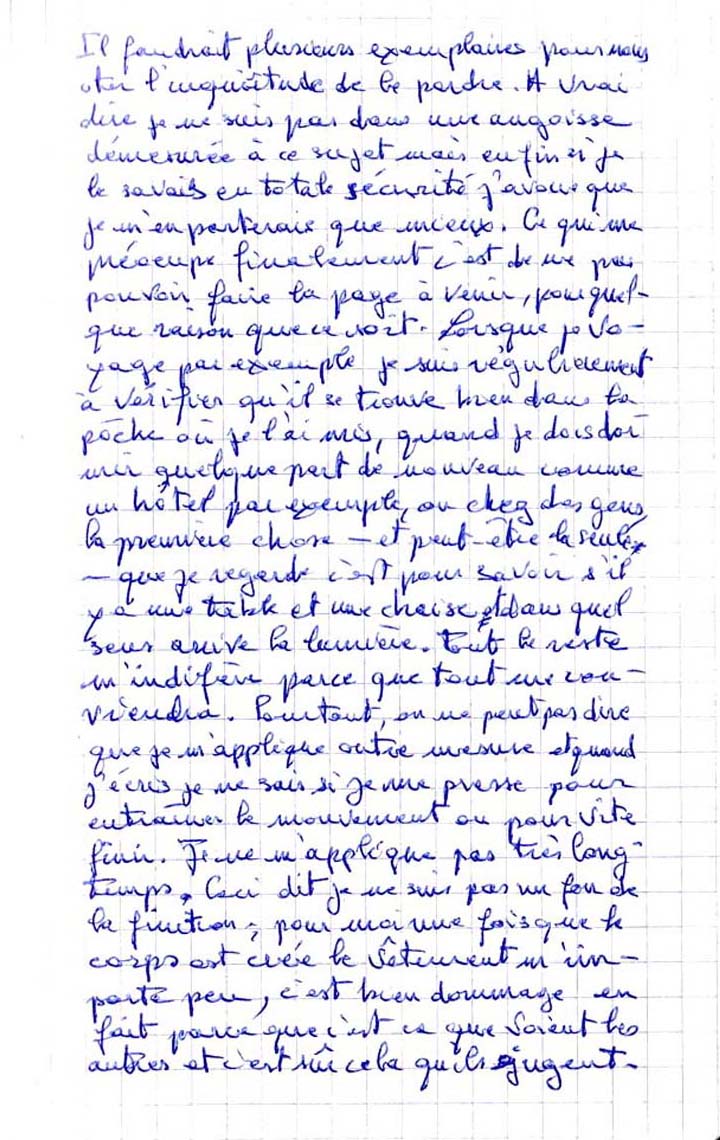 Il faudrait plusieurs exemplaires pour nous
oter l'inquiétude de le perdre. A vrai
dire je ne suis pas dans une angoisse
démesurée à ce sujet mais enfin si je
le savais en totale sécurité j'avoue que
je m'en porterais que mieux. Ce qui me
préocupe finalement c'est de ne pas
pouvoir faire la page à venir, pour quel-
que raison que ce soit. Lorsque je vo-
yage par exemple je suis régulièrement
à vérifier qu'il se trouve bien dans la
pôche où je l'ai mis, quand je dois dor
mir quelque part de nouveau comme
un hôtel par exemple, ou chez des gens,
la première chose — et peut-être la seule
— que je regarde c'est pour savoir s'il
y a une table et une chaise, et dans quel
sens arrive la lumière. Tout le reste
m'indifère parce que tout me con-
viendra. Pourtout, on ne peut pas dire
que je m'applique outre mesure et quand
j'écris je ne sais si je me presse pour
entraîner le mouvement ou pour vite
finir. Je ne m'applique pas très long-
temps. Ceci dit je ne suis pas un fou de
la finition ; pour moi une fois que le
corps est créé le vêtement m'im-
porte peu, c'est bien dommage en
fait parce que c'est ce que voient les
autres et c'est sur cela qu'ils jugent.